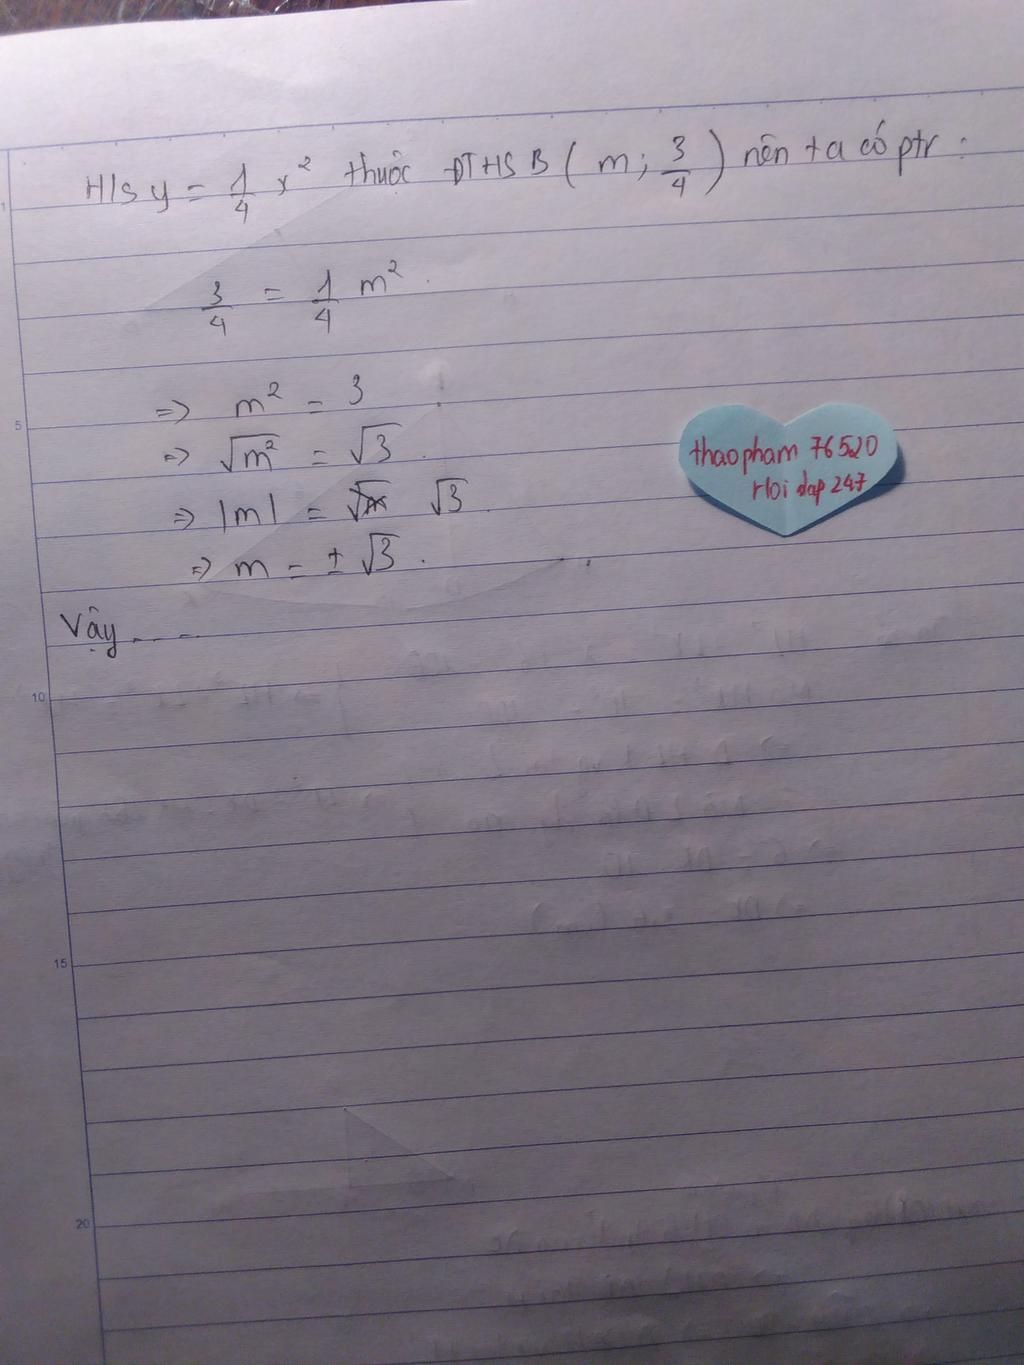 H/s y = 1/4 x² thuộc ĐTHS B ( m; 3/4 ) nên ta có ptr :
3/4 = 1/4 m² .
=> m² = 3
=> √m² = √3 .
=> |m| = √m √3 .
=> m = ± √3 .
Vậy ----
thaopham 76520
Hoi dap 247
1
5
10
15
20